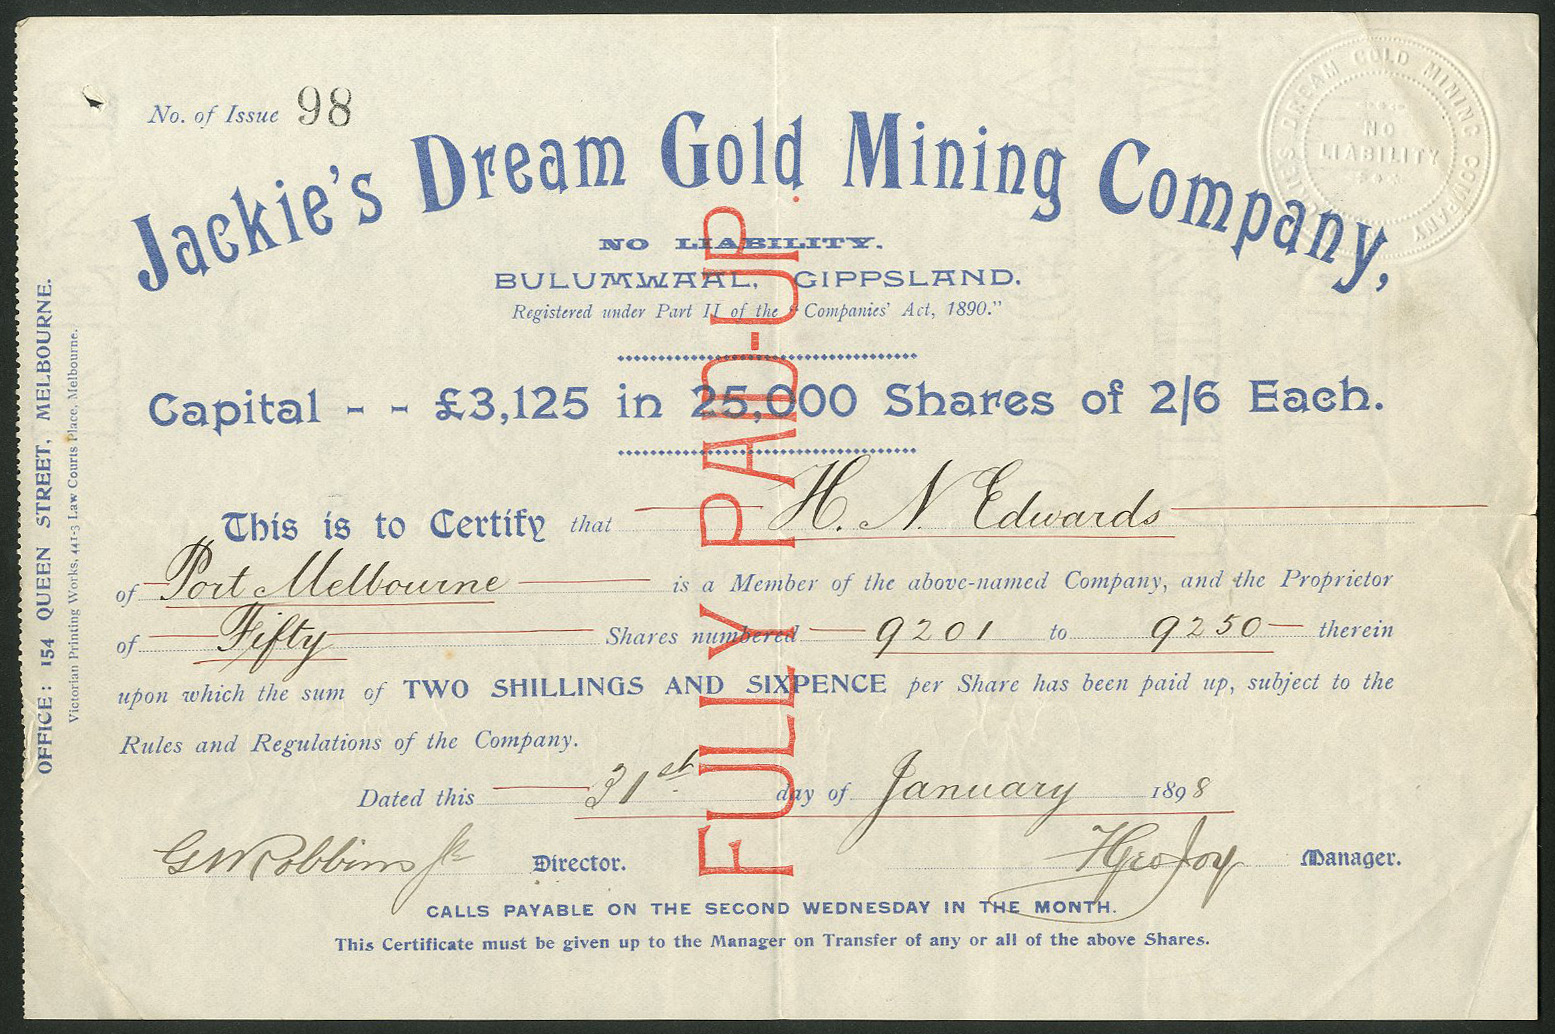 No. of Issue 98
JACKIES DREAM GOLD MINING COMPANY
NO
LIABILITY
Jackie's Dream Gold Mining Company,
NO LIABILITY.
BULUMWAAL, GIPPSLAND.
Registered under Part II of the "Companies' Act, 1890."
Capital - - £3,125 in 25,000 Shares of 2/6 Each.
This is to Certify that H. N. Edwards
of Port Melbourne is a Member of the above-named Company, and the Proprietor
of Fifty Shares numbered 9201 to 9250 therein
upon which the sum of TWO SHILLINGS AND SIXPENCE per Share has been paid up, subject to the
Rules and Regulations of the Company.
Dated this 31st day of January 1898
G W Robbins Jr Director. H Geo Joy Manager.
CALLS PAYABLE ON THE SECOND WEDNESDAY IN THE MONTH.
This Certificate must be given up to the Manager on Transfer of any or all of the above Shares.
FULLY PAID-UP
OFFICE: 154 QUEEN STREET, MELBOURNE.
Victorian Printing Works, 441-3 Law Courts Place, Melbourne.